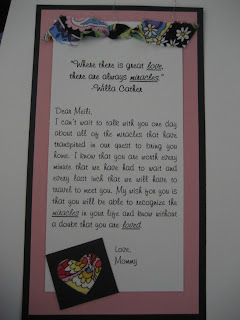 "Where there is great love,
there are always miracles."
-Willa Cather
Dear Meili,
I can't wait to talk with you one day
about all of the miracles that have
transpired in our quest to bring you
home. I know that you are worth every
minute that we have had to wait and
every last inch that we will have to
travel to meet you. My wish for you is
that you will be able to recognize the
miracles in your life and know without
a doubt that you are loved.
Love,
Mommy